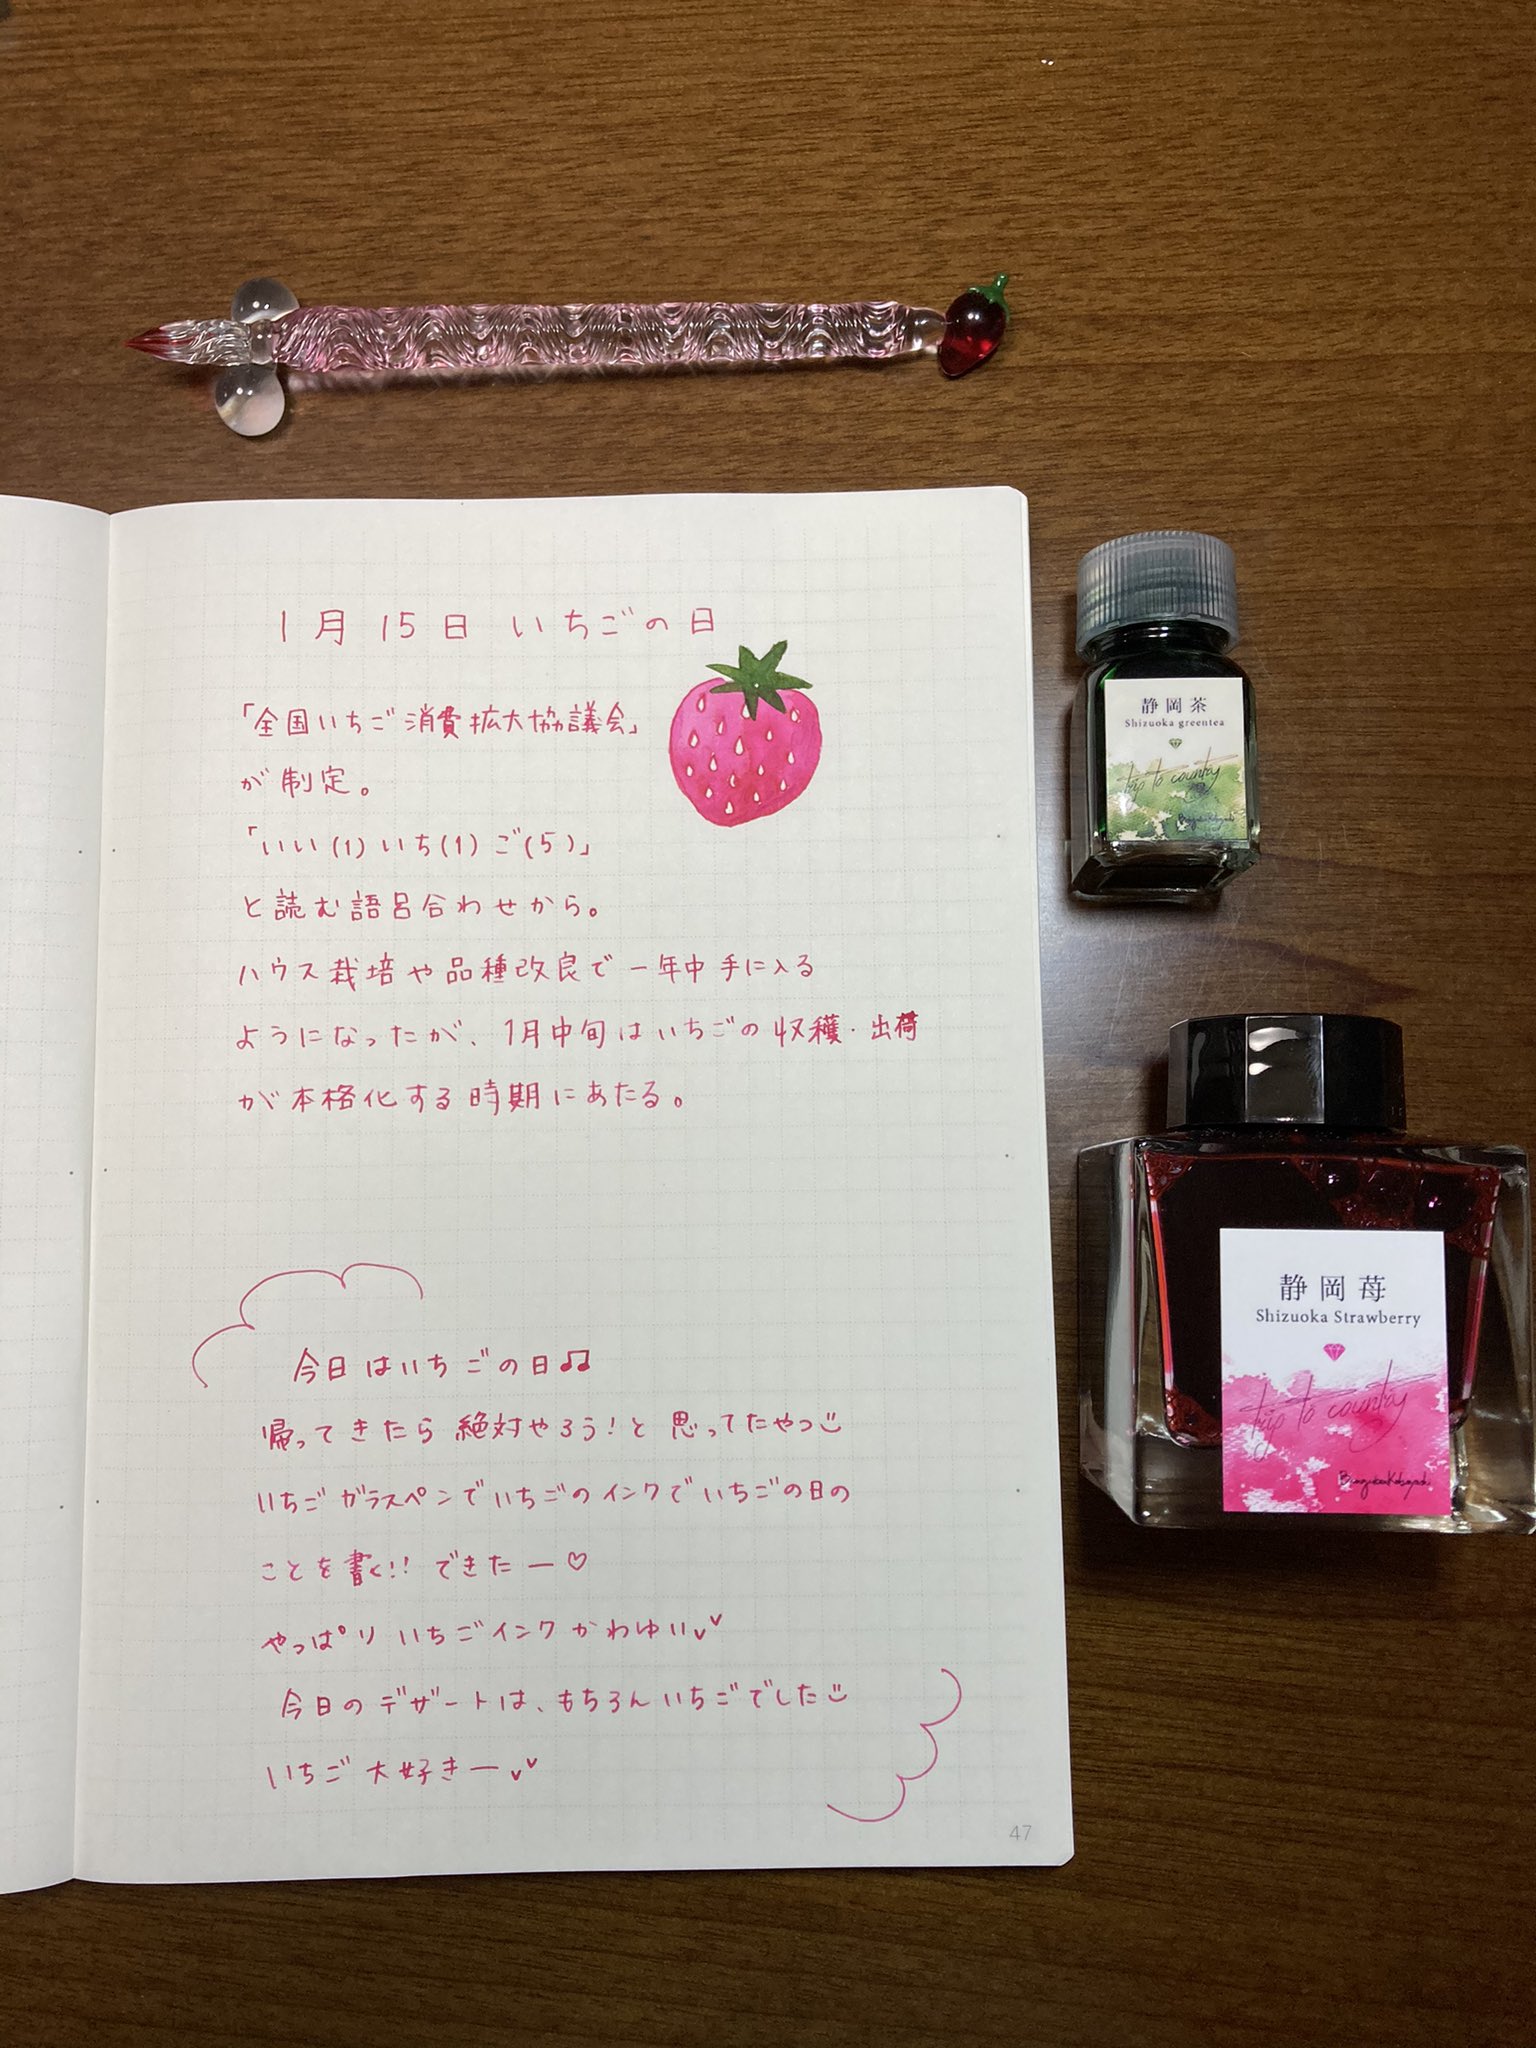 1月15日 いちごの日
「全国いちご消費拡大協議会」
が制定。
「いい(1)いち(1)ご(5)」
と読む語呂合わせから。
ハウス栽培や品種改良で一年中手に入る
ようになったが、1月中旬はいちごの収穫・出荷
が本格化する時期にあたる。
今日はいちごの日♫
帰ってきたら絶対やろう!と思ってたやつ
いちごガラスペンでいちごのインクでいちごの日の
ことを書く!!できたー♡
やっぱりいちごインクかわゆい
今日のデザートは、もちろんいちごでした
いちご大好きー
47
静岡茶
Shizuoka greentea
trip to country
静岡苺
Shizuoka Strawberry
trip to country